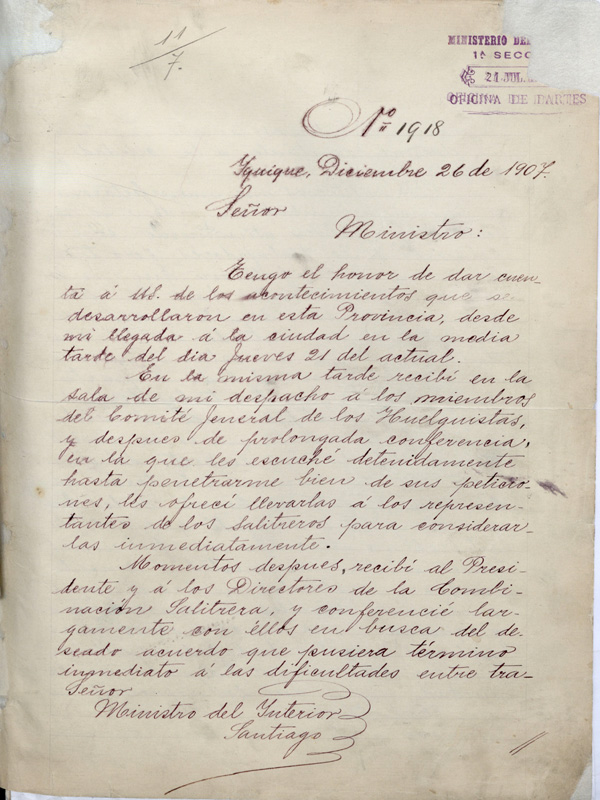 11
7.
MINISTERIO DE
1A SECC
24 JUL
OFICINA DE PARTES
No 1918
Iquique, Diciembre 26 de 1907.
Señor
Ministro:
Tengo el honor de dar cuen-
ta á US. de los acontecimientos que se
desarrollaron en esta Provincia, desde
mi llegada á la ciudad en la media
tarde del dia Jueves 21 del actual.
En la misma tarde recibí en la
sala de mi despacho á los miembros
del Comité Jeneral de los Huelguistas,
y despues de prolongada conferencia,
en la que les escuché detenidamente
hasta penetrarme bien de sus peticio-
nes, les ofrecí llevarlas á los represen-
tantes de los salitreros para considerar-
las inmediatamente.
Momentos despues, recibí al Presi-
dente y á los Directores de la Combi-
nación Salitrera, y conferencié lar-
gamente con éllos en busca del de-
seado acuerdo que pusiera término
inmediato á las dificultades entre tra-
Señor
Ministro del Interior
Santiago